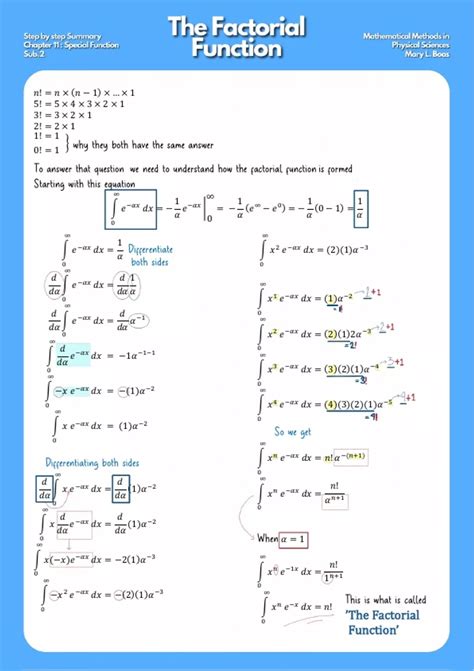 Step by step Summary
Chapter 11 : Special Function
Sub:2
The Factorial
Function
Mathematical Methods in
Physical Sciences
Mary L. Boas
n! = n × (n − 1) × ... × 1
5! = 5 × 4 × 3 × 2 × 1
3! = 3 × 2 × 1
2! = 2 × 1
1! = 1
0! = 1 } why they both have the same answer
To answer that question we need to understand how the factorial function is formed
Starting with this equation
∫₀^∞ e^{−αx} dx = −1/α e^{−αx} |₀^∞ = −1/α (e^∞ − e^0) = −1/α (0 − 1) = 1/α
∫₀^∞ e^{−αx} dx = 1/α Differentiate both sides
d/dα ∫₀^∞ e^{−αx} dx = d/dα 1/α
d/dα ∫₀^∞ e^{−αx} dx = d/dα α^{−1}
∫₀^∞ d/dα e^{−αx} dx = −1α^{−1−1}
∫₀^∞ −x e^{−αx} dx = −(1)α^{−2}
∫₀^∞ x e^{−αx} dx = (1)α^{−2}
Differentiating both sides
d/dα ∫₀^∞ x e^{−αx} dx = d/dα (1)α^{−2}
∫₀^∞ x d/dα e^{−αx} dx = −2(1)α^{−3}
∫₀^∞ x(−x)e^{−αx} dx = −2(1)α^{−3}
∫₀^∞ −x² e^{−αx} dx = −(2)(1)α^{−3}
∫₀^∞ x² e^{−αx} dx = (2)(1)α^{−3}
∫₀^∞ x¹ e^{−αx} dx = (1)α^{−2} 1+1
=1!
∫₀^∞ x² e^{−αx} dx = (2)(1)2α^{−3} 2+1
=2!
∫₀^∞ x³ e^{−αx} dx = (3)(2)(1)α^{−4} 3+1
=3!
∫₀^∞ x⁴ e^{−αx} dx = (4)(3)(2)(1)α^{−5} 4+1
=4!
So we get
∫₀^∞ xⁿ e^{−αx} dx = n! α^{−(n+1)}
∫₀^∞ xⁿ e^{−αx} dx = n!/α^{n+1}
When α = 1
∫₀^∞ xⁿ e^{−1x} dx = n!/1^{n+1}
∫₀^∞ xⁿ e^{−x} dx = n!
This is what is called
'The Factorial
Function'